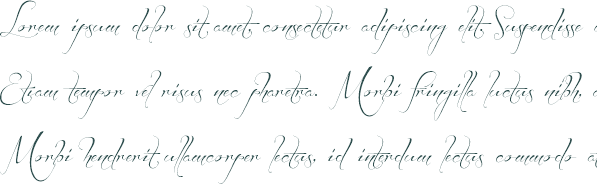 Lorem ipsum dolor sit amet, consectetur adipiscing elit. Suspendisse
Etiam tempor vel risus nec pharetra. Morbi fringilla luctus nibh,
Morbi hendrerit ullamcorper lectus, id interdum lectus commodo at